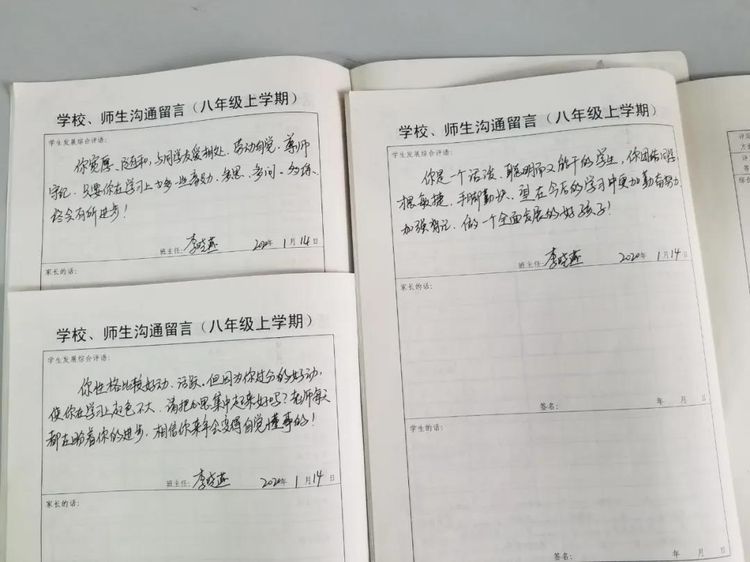 学校、师生沟通留言（八年级上学期）
学生发展综合评语：
你宽厚、随和，与同学友爱相处，劳动自觉，尊师
守纪，只要你在学习上，多思、多问、多练、
终会有所进步！
班主任：李晓燕 2020年1月14日
家长的话：
学校、师生沟通留言（八年级上学期）
学生发展综合评语：
你性格比较好动、活跃，但因为你过分的好动，
使你在学习上起色不大，请把心思集中起来好吗？老师每天
都在盼着你的进步，相信你来年会变得自觉懂事的！
班主任：李晓燕 2020年1月14日
家长的话：
学校、师生沟通留言（八年级上学期）
学生发展综合评语：
你是一个活泼、聪明而又能干的学生，你团结同学
思想敏捷、手脚勤快，望在今后的学习中更加勤奋努力
加强守纪，做一个全面发展的好孩子！
班主任：李晓燕 2020年1月14日
家长的话：
签名： 年 月 日
学生的话：
签名： 年 月 日